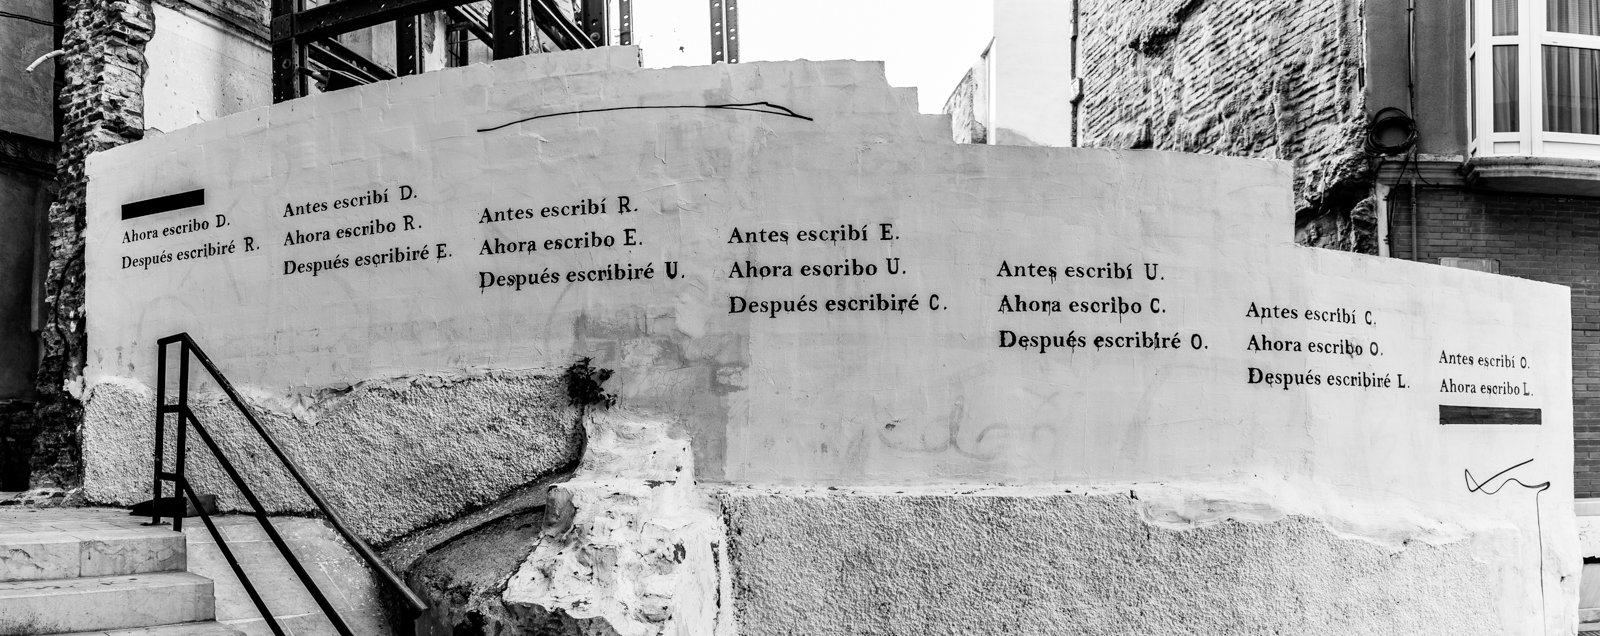 Ahora escribo D.
Después escribiré R.
Antes escribí D.
Ahora escribo R.
Después escribiré E.
Antes escribí R.
Ahora escribo E.
Después escribiré U.
Antes escribí E.
Ahora escribo U.
Después escribiré C.
Antes escribí U.
Ahora escribo C.
Después escribiré O.
Antes escribí C.
Ahora escribo O.
Después escribiré L.
Antes escribí O.
Ahora escribo L.